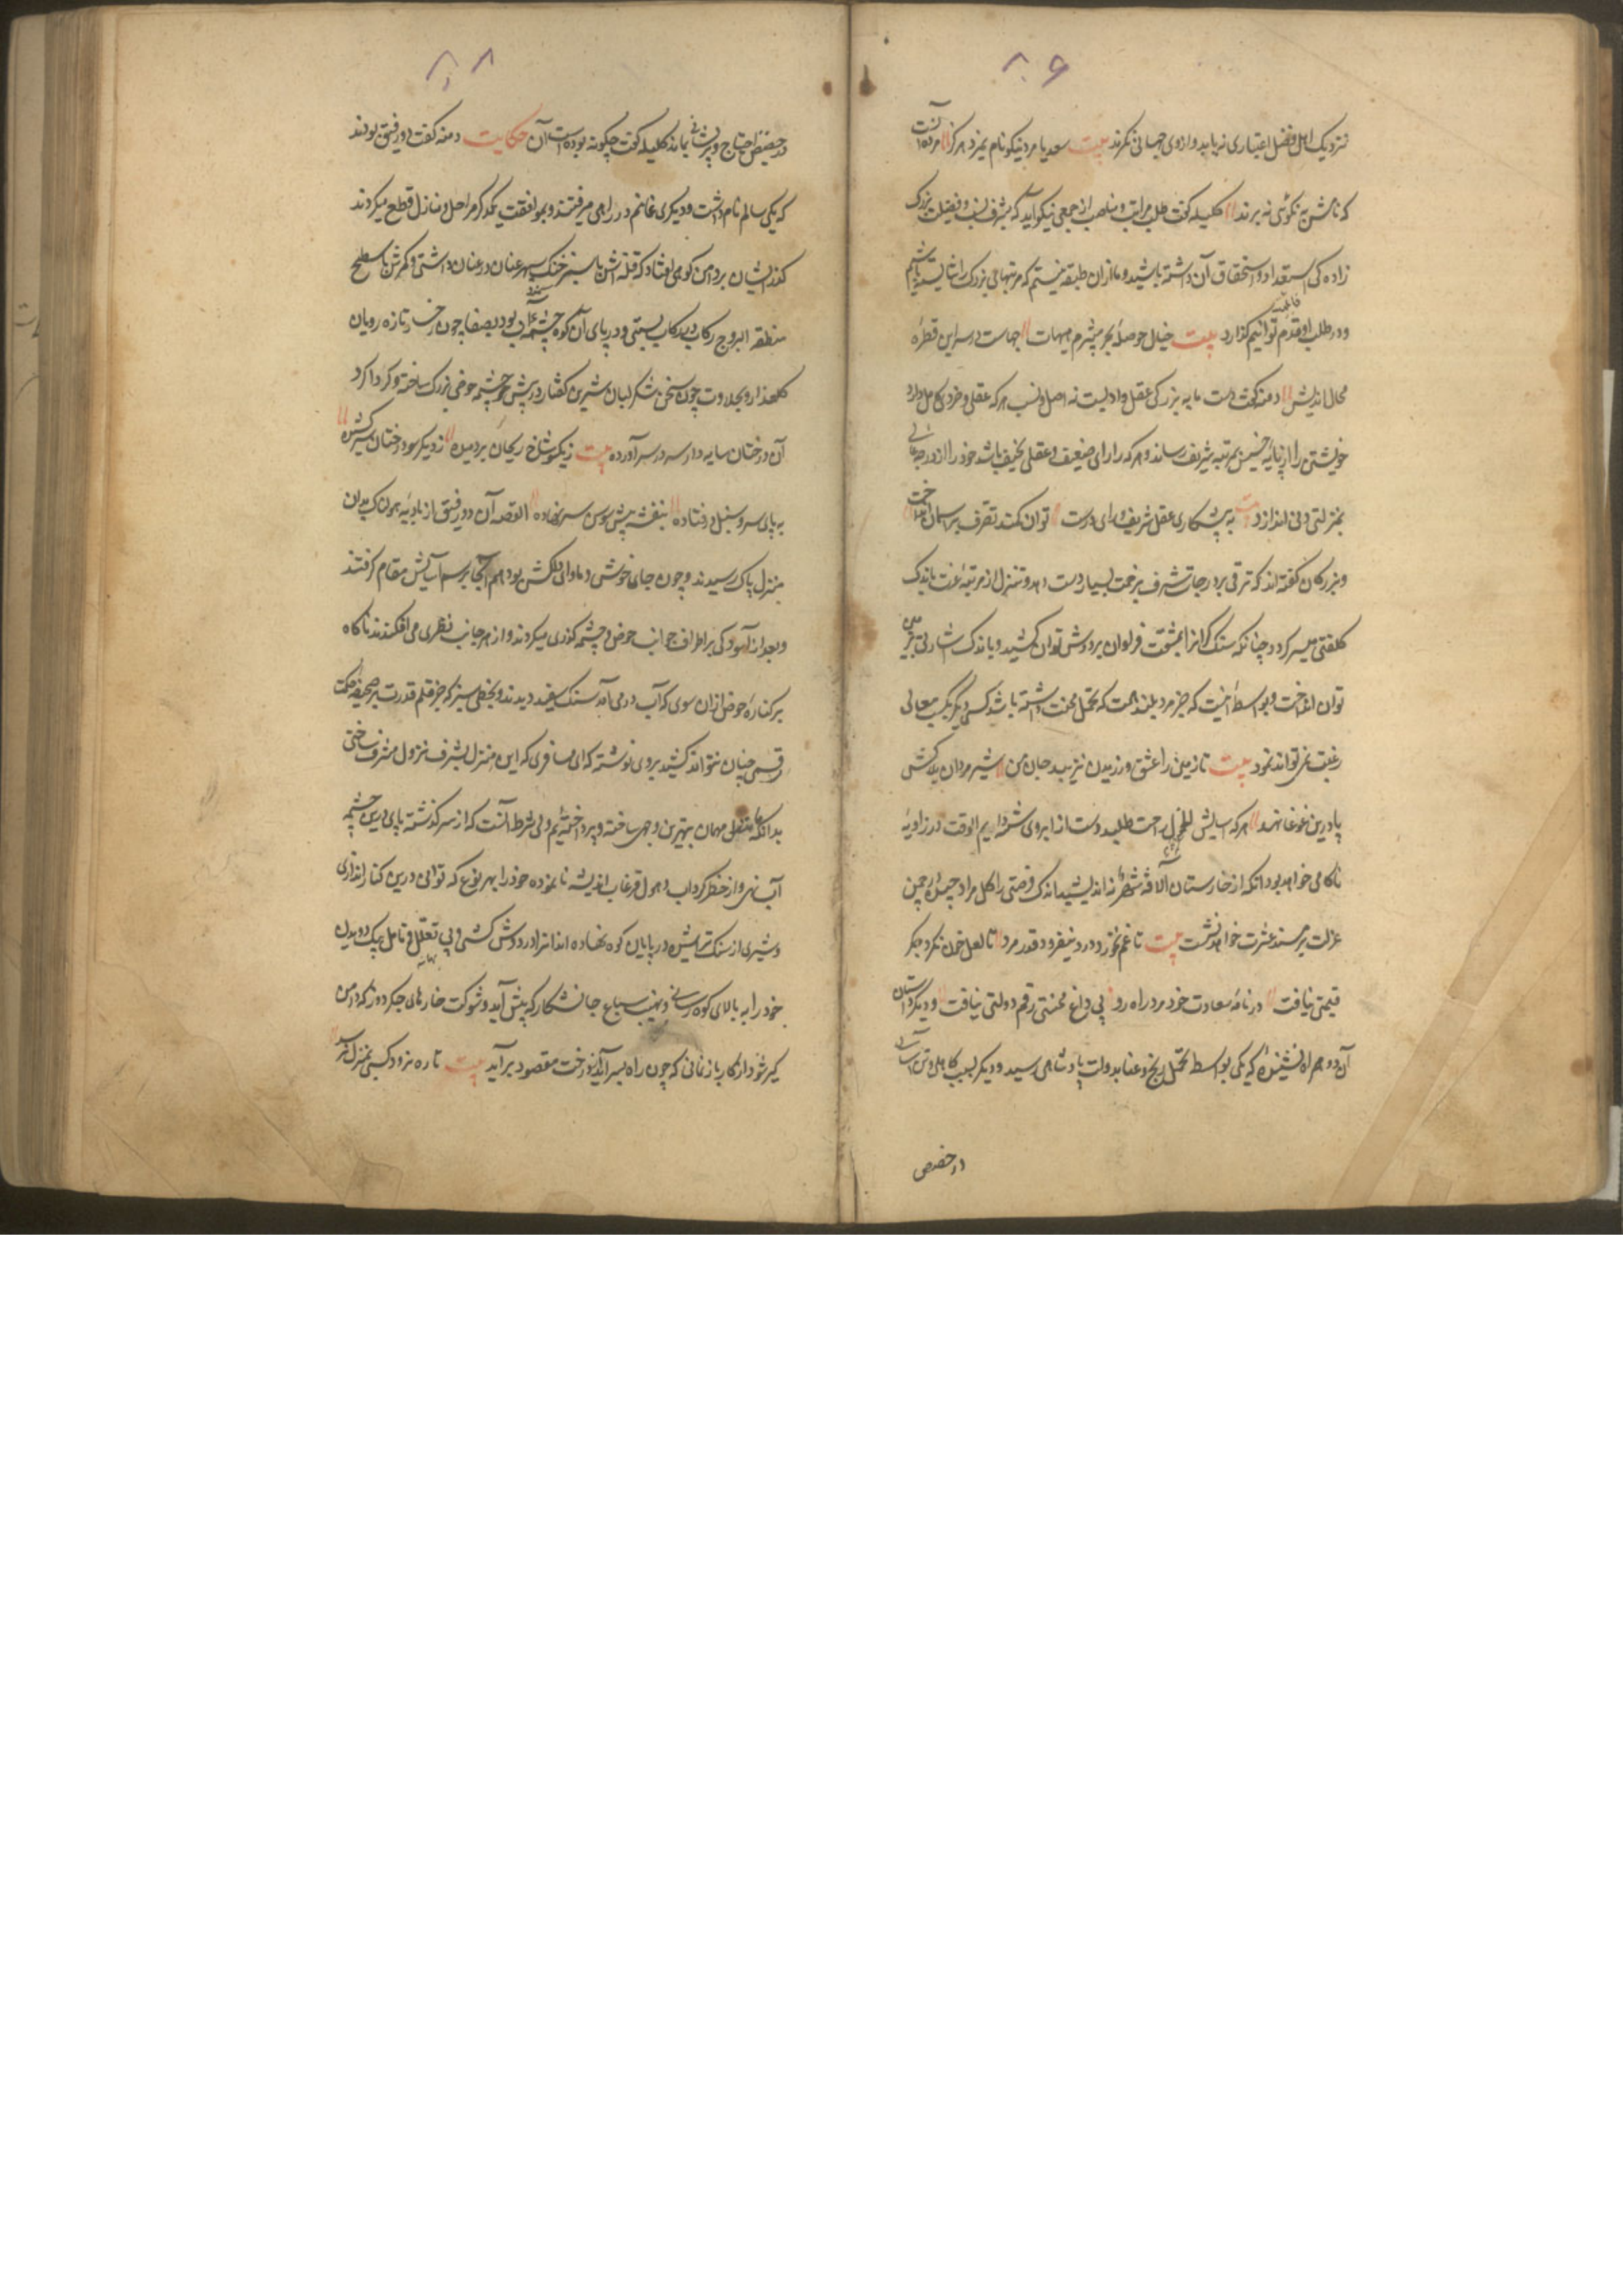 ۸۰۶
نزدیک اهل فضل اعتباری نیابد و از وی حسابی نگیرند بیت سعدیا مرد نیکونام نمیرد هرگز مرده آنست
که نامش به نکوئی نه برند کلیله گفت طلب مراتب و مناصب از جمعی نیکو آید که بشرف نسب و فضیلت بزرک
زاده کی استعداد و استحقاق آن داشته باشند و ما ازان طبقه نیستیم که مرتبهای بزرک را شایسته باشیم
و در طلب او قدم توانیم گذارد بیت خیال حوصلهٔ بحر می پزم هیهات چهاست در سر این قطرهٔ
محال اندیش دمنه گفت مایه بزرکی عقل و ادبست نه اصل و نسب هر که عقلی و خرد کامل دارد
خویشتن را از پایهٔ خسیس بمرتبه شریف رساند و هر که را رای ضعیف و عقلی نحیف باشد خود را از درجه عالی
بمنزلتی دنی اندازد بیت به پیشکاری عقل شریف و رای درست توان کمند تصرف بر آسمان انداخت
و بزرکان گفته اند که ترقی بر درجات شرف بزحمت بسیار دست دهد و تنزل از مرتبه عزت باندک
کلفتی میسر کردد چنانکه سنک گرانرا بمشقت فراوان بر دوش توان کشید و باندک اشارتی بر زمین
توان انداخت و بواسطهٔ اینست که جز مرد بلند همت که تحمل محنت داشته باشد کسی دیگر بکسب معالی
رغبت نمی تواند نمود بیت نازنین را عشق ورزیدن نزیبد جان من شیر مردان بلاکش
پا درین غوغا نهند هر که آسایش طلبد دست از آبروی شسته دایم الوقت در زاویه
ناکامی خواهد بود و آنکه از خارستان نه اندیشد باندک فرصتی کل مراد چیده در چمن
عزلت بر مسند عشرت خواهد نشست بیت تا غم نخورد و درد نیفزود قدر مرد تا لعل خون نکرد جکر
قیمتی نیافت در نامهٔ سعادت خود مرد راه رو بی داغ محنتی رقم دولتی نیافت و دیکر داستان
آن دو همراه نشنیدهٔ که یکی بواسطه تحمل رنج و عنا بدولت پادشاهی رسید و دیکر بسبب کاهلی و تن آسانی
در حضیض
۸۰۸
در حضیض احتیاج و پریشانی بماند کلیله گفت چگونه بوده است آن حکایت دمنه گفت دو رفیق بودند
که یکی سالم نام داشت و دیگری غانم در راهی میرفتند و بموافقت یکدگر مراحل و منازل قطع میکردند
گذر ایشان بر دامن کوهی افتاد که قله اش با سبز خنک سپهر عنان در عنان داشتی و کمرش با سطح
منطقه البروج رکاب در رکاب بستی و در پای آن کوه چشمه آب بود بصفا چون رخسار تازه رویان
کلعذار و بحلاوت چون سخن شکر لبان شیرین گفتار در پیش چشمه حوضی بزرک ساخته و کرداکرد
آن درختان سایه دار سر در سر آورده بیت ز یکسو شاخ ریحان بردمیده ز دیکر سو درختان سر کشیده
به پای سرو سنبل در فتاده بنفشه پیش سوسن سر نهاده القصه آن دو رفیق از بادیه هولناک بدان
منزل پاک رسیدند و چون جای خوش و ماوای دلکش بود هم آنجا برسم آسایش مقام گرفتند
و بعد از آسودکی بر اطراف و جوانب حوض و چشمه گذری میکردند و از هر جانب نظری می افکندند ناکاه
بر کنارهٔ حوض ازان سوی که آب در می آمد سنک سفید دیدند و بخطی سبز که جز قلم قدرت بر صحیفهٔ حکمت
رقمی چنان نتواند کشید بر وی نوشته که ای مسافری که این منزل بشرف نزول مشرف ساختی
بدانکه ما نزل مهمان بهترین وجهی ساخته و پرداخته ایم ولی شرط آنست که از سر گذشته پای درین چشمه
آب نهی و از خطر کرداب و هول غرقاب اندیشه نا نموده خود را بهر نوع که توانی درین کنار اندازی
و شیری از سنک تراشیده در پایان کوه نهاده اند آنرا در دوش کشی و بی تعلل و تامل بیک دویدن
خود را به بالای کوه رسانی و بنهیب سباع جانشکار که پیش آید و شوکت خارهای جکر دوز که دامن
گیر شود از کار باز نمانی که چون راه بسر آید درخت مقصود ببر آید بیت تا ره نرود کسی بمنزل نرسد